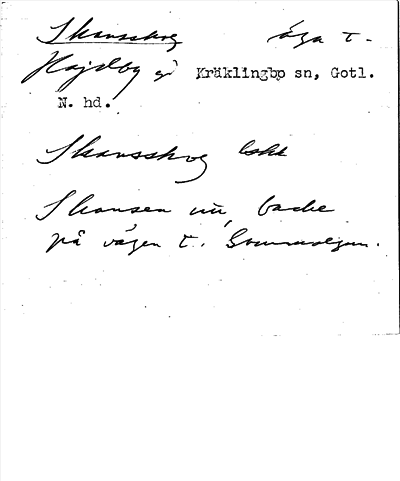 Skansskog äga t.
Hajdby gd Kräklingbo sn, Gotl.
N. hd.
Skansskog
Skansen nu, backe
på vägen t.